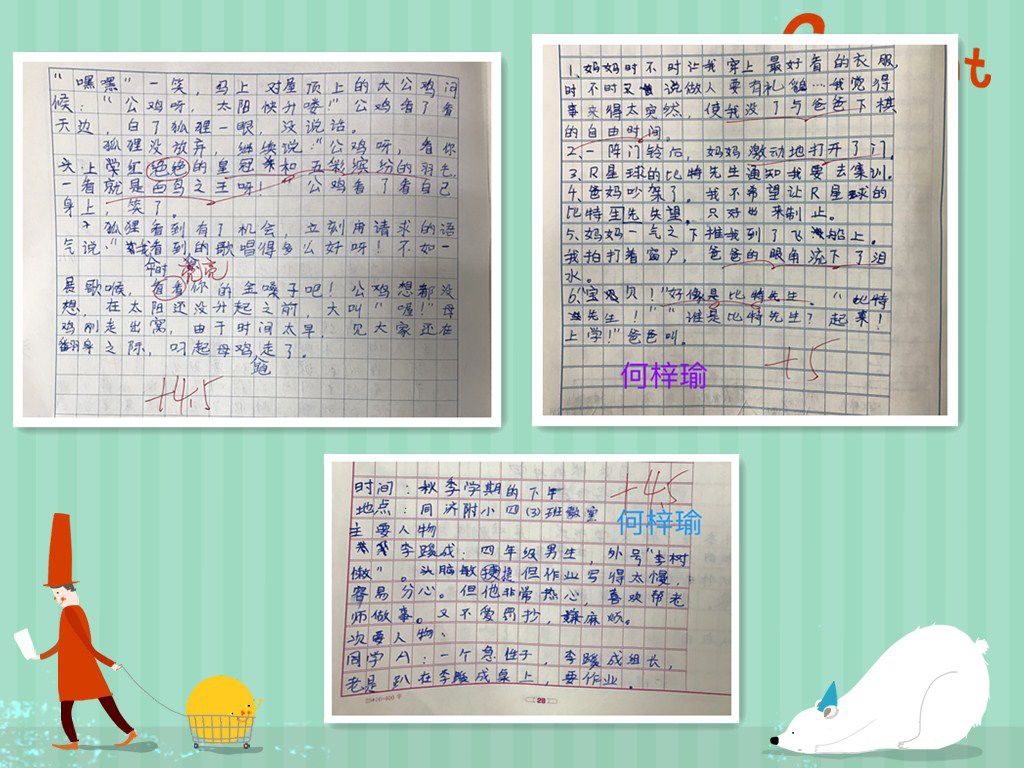 “嘿嘿”一笑，马上对屋顶上的大公鸡问
候：“公鸡呀，太阳快升喽”公鸡看了看
天边，白了狐狸一眼，没说话。
狐狸没放弃，继续说：“公鸡呀，看你
头上学红艳艳的皇冠和五彩缤纷的羽毛
一看就是百鸟之王呀！公鸡看了看自己
身上，笑了。
狐狸看到有了机会，立刻用请求的语
气说：“我看到的歌唱得多么好呀！不如一
平时 亮亮
展歌喉，看看你的金嗓子吧！公鸡想都没
想，在太阳还没升起之前，大叫“喔！”母
鸡刚走出窝，由于时间太早，见大家还在
翻身之际，叼起母鸡走了。
+4.5
1、妈妈时不时让我穿上最好看的衣服，
时不时又说做人要有礼貌…我觉得
事来得太突然，使我没了与爸爸下棋
的自由时间。
2、一阵门铃后，妈妈激动地打开了门。
3、R星球的比特先生通知我要去集训。
4、爸妈吵架了。我不希望让R星球的
比特先生失望。只好出来制止。
5、妈妈一气之下推我到了飞船上。
我拍打着窗户，爸爸的眼角流下了泪
水。
6、“宝贝！”好像是比特先生。“比特
先生！”“谁是比特先生？起来！
上学！”爸爸叫。
+5
何梓瑜
+4.5
时间：秋季学期的下午
地点：同济附小四(3)班教室
何梓瑜
主要人物
李踐成：四年级男生，外号“李树
懒”。头脑敏捷但作业写得太慢，
容易分心。但他非常热心，喜欢帮老
师做事。又不爱罚抄，嫌麻烦。
次要人物：
同学A：一个急性子，李踐成组长，
老是趴在李踐成桌上，要作业。
28